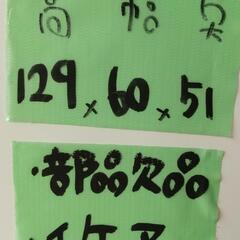 高 幅 奥
129×60×51
・部品欠品
・イケア